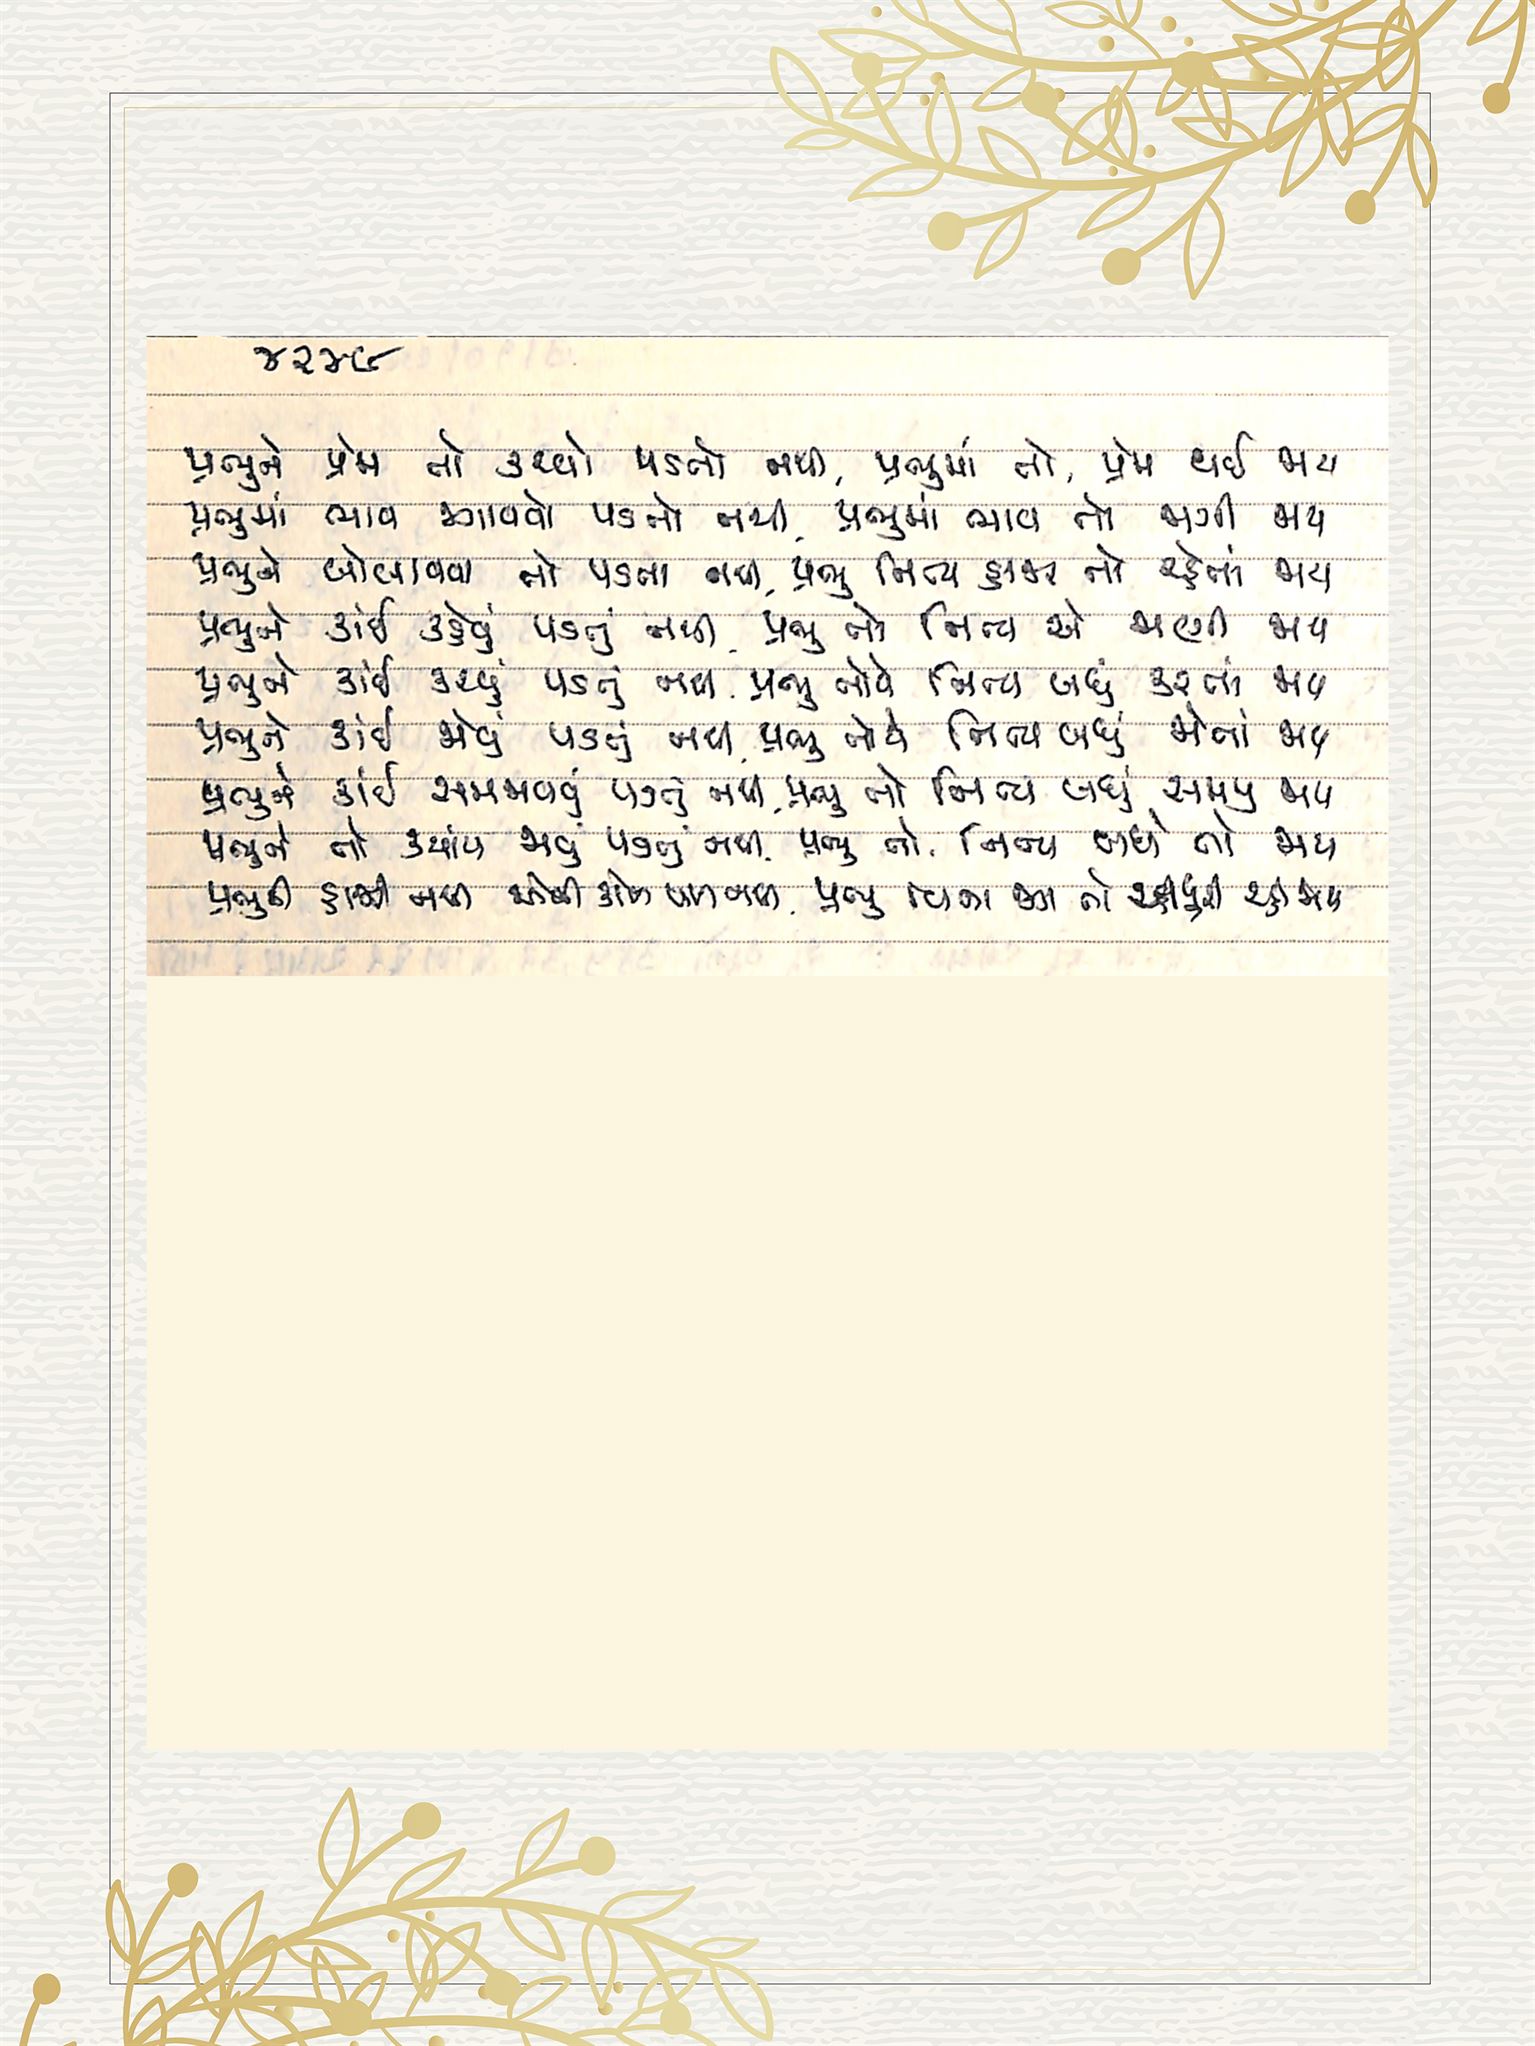 ૪૨૪૯
પ્રભુને પ્રેમ તો કરવો પડતો નથી, પ્રભુમાં તો, પ્રેમ થઈ જાય
પ્રભુમાં ભાવ જગાવવો પડતો નથી, પ્રભુમાં ભાવ તો જાગી જાય
પ્રભુને બોલાવવા તો પડતા નથી, પ્રભુ નિત્ય હાજર તો રહેતાં જાય
પ્રભુને કાંઈ કહેવું પડતું નથી, પ્રભુ તો નિત્ય એ જાણી જાય
પ્રભુને કાંઈ કરવું પડતું નથી, પ્રભુ તોયે નિત્ય બધું કરતાં જાય
પ્રભુને કાંઈ જોવું પડતું નથી, પ્રભુ તોયે નિત્ય બધું જોતાં જાય
પ્રભુને કાંઈ સમજાવવું પડતું નથી, પ્રભુ તો નિત્ય બધું સમજી જાય
પ્રભુને તો ક્યાંય જાવું પડતું નથી, પ્રભુ તો, નિત્ય બધે તો જાય
પ્રભુની હાજરી નથી એવી કોઈ નથી, પ્રભુ વિના આ તો જાય